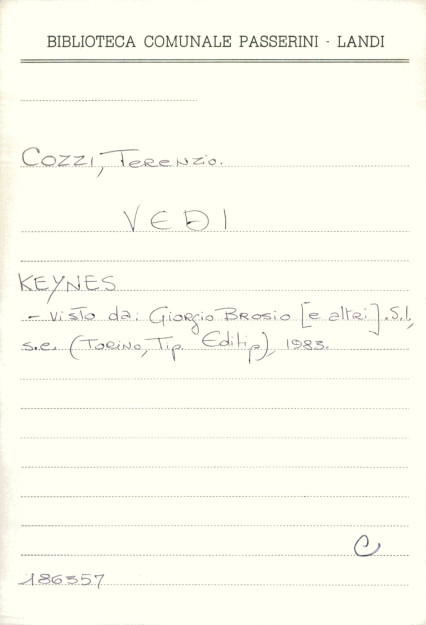 BIBLIOTECA COMUNALE PASSERINI - LANDI
COZZI, Terenzio.
VEDI
KEYNES
- visto da: Giorgio BROSIO [e altri]. S.l,
s.e. (TORINO, Tip. Editip), 1983.
C
186357